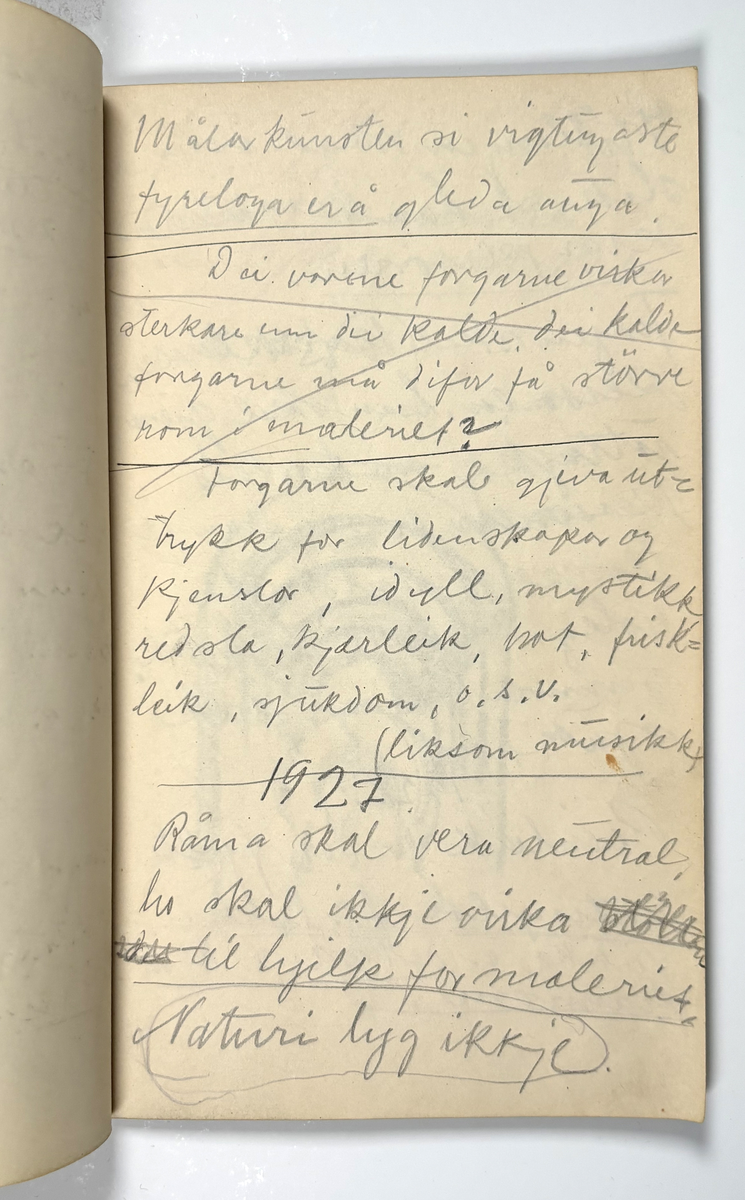 Målarkunsten si vigtugaste
fyreloga er å gleda auga.
Dei varme fargarne virkar
sterkare enn dei kalde, dei kalde
fargarne må difor få större
rom i maleriet?
Fargarne skal gjeva ut=
trykk for lidenskapar og
kjenslor, idyll, mystikk
redsla, kjærleik, hat, frisk=
leik, sjukdom, o.s.v.
(liksom musikk)
1927
Råma skal vera neutral,
ho skal ikkje virka
til hjelp for maleriet.
Naturi lyg ikkje.